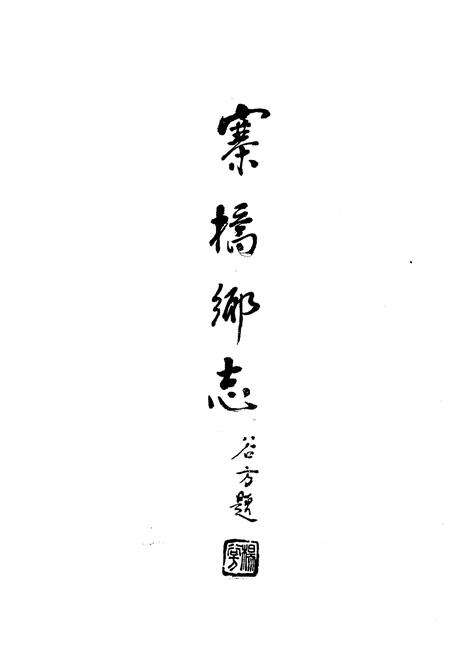 寨橋鄉志
谷方題